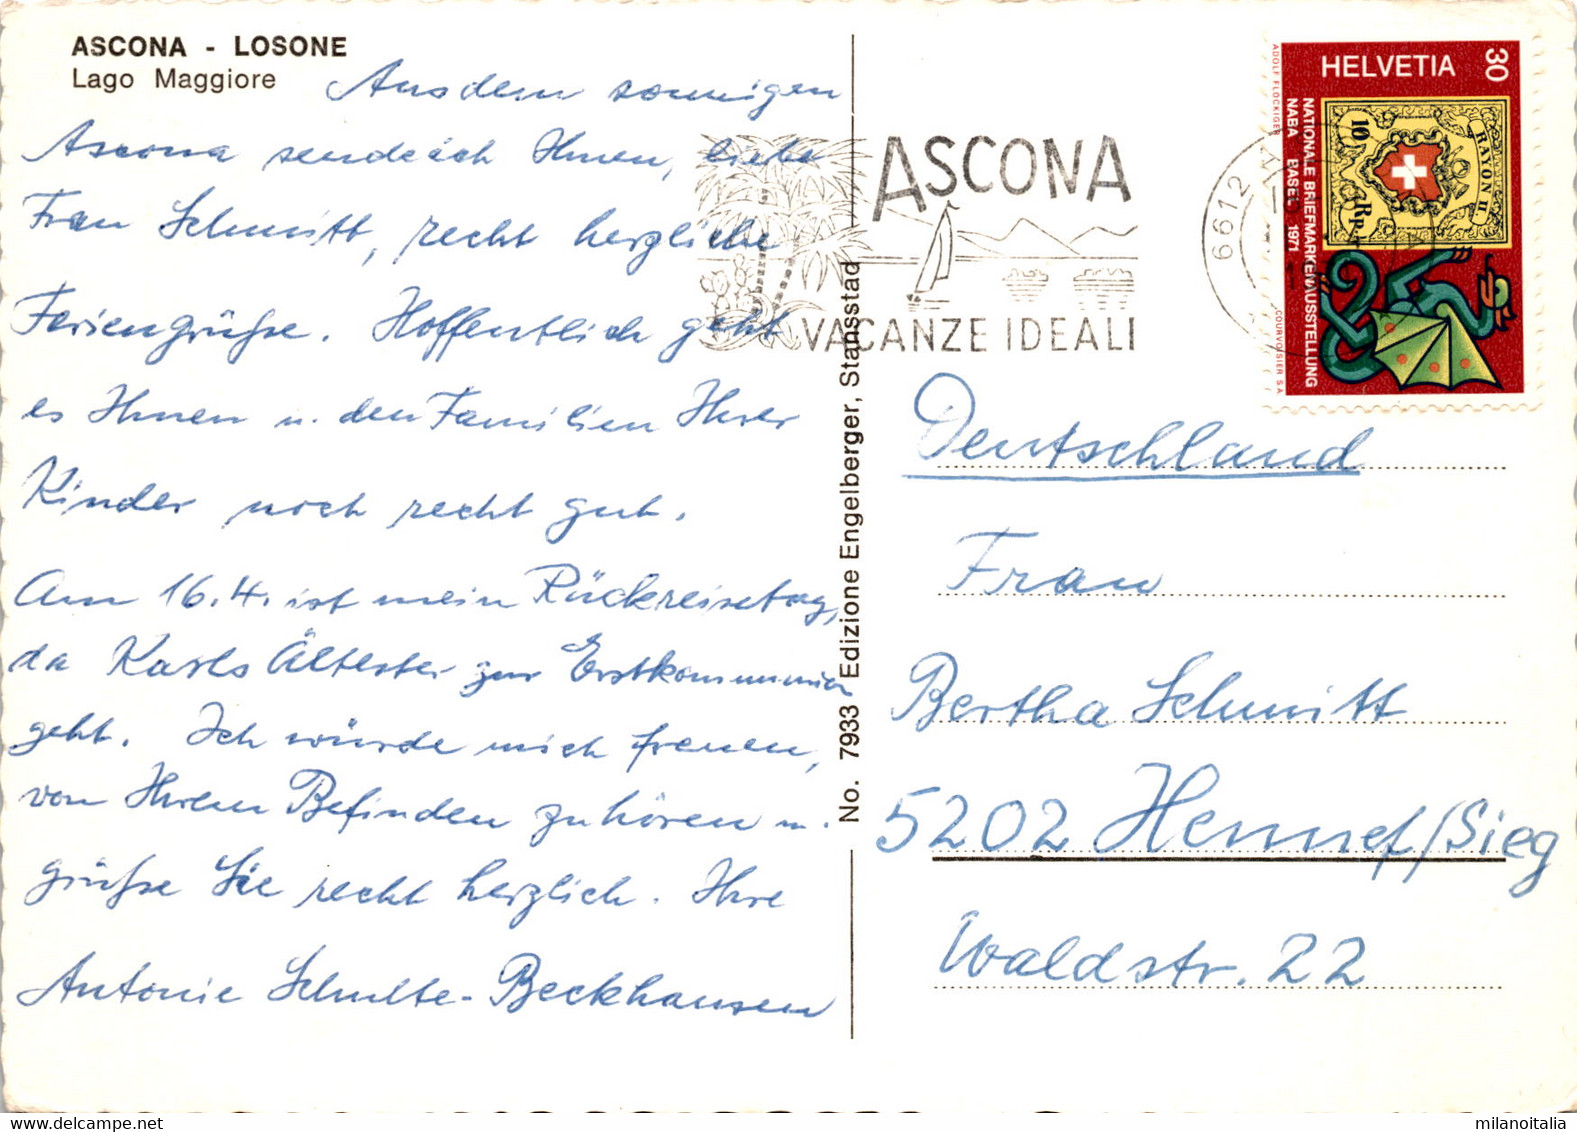 ASCONA - LOSONE
Lago Maggiore
Aus dem sonnigen
Ascona sende ich Ihnen, liebe
Frau Schmitt, recht herzliche
Feriengrüße. Hoffentlich geht
es Ihnen u. den Familien Ihrer
Kinder noch recht gut.
Am 16.4. ist mein Rückreisetag,
da Karls Ältester zur Erstkommunion
geht. Ich würde mich freuen,
von Ihrem Befinden zu hören u.
grüße Sie recht herzlich. Ihre
Antonie Schulte-Beckhausen
No. 7933 Edizione Engelberger, Stansstad
ASCONA
VACANZE IDEALI
6612
HELVETIA 30
NATIONALE BRIEFMARKENAUSSTELLUNG
NABA BASEL 1971
RAYON II.
10 Rp.
ADOLF FLÜCKIGER
COURVOISIER S.A.
Deutschland
Frau
Bertha Schmitt
5202 Hennef/Sieg
Waldstr. 22
milanoitalia